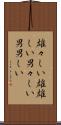 雄々しい雄雄
しい男々しい
男男しい